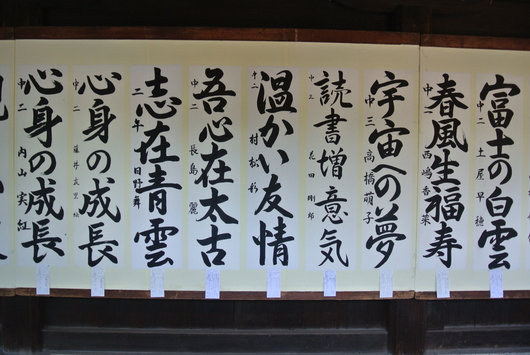 富士の白雲
中二 土屋早穂
春風生福寿
中一 西嶋香菜
宇宙への夢
中三 高橋萌子
読書増意気
中三 花田剛郎
温かい友情
中二 村松彩
吾心在太古
中二 長島麗
志在青雲
二年 日野舞
心身の成長
中二
心身の成長
中二 内山実紅